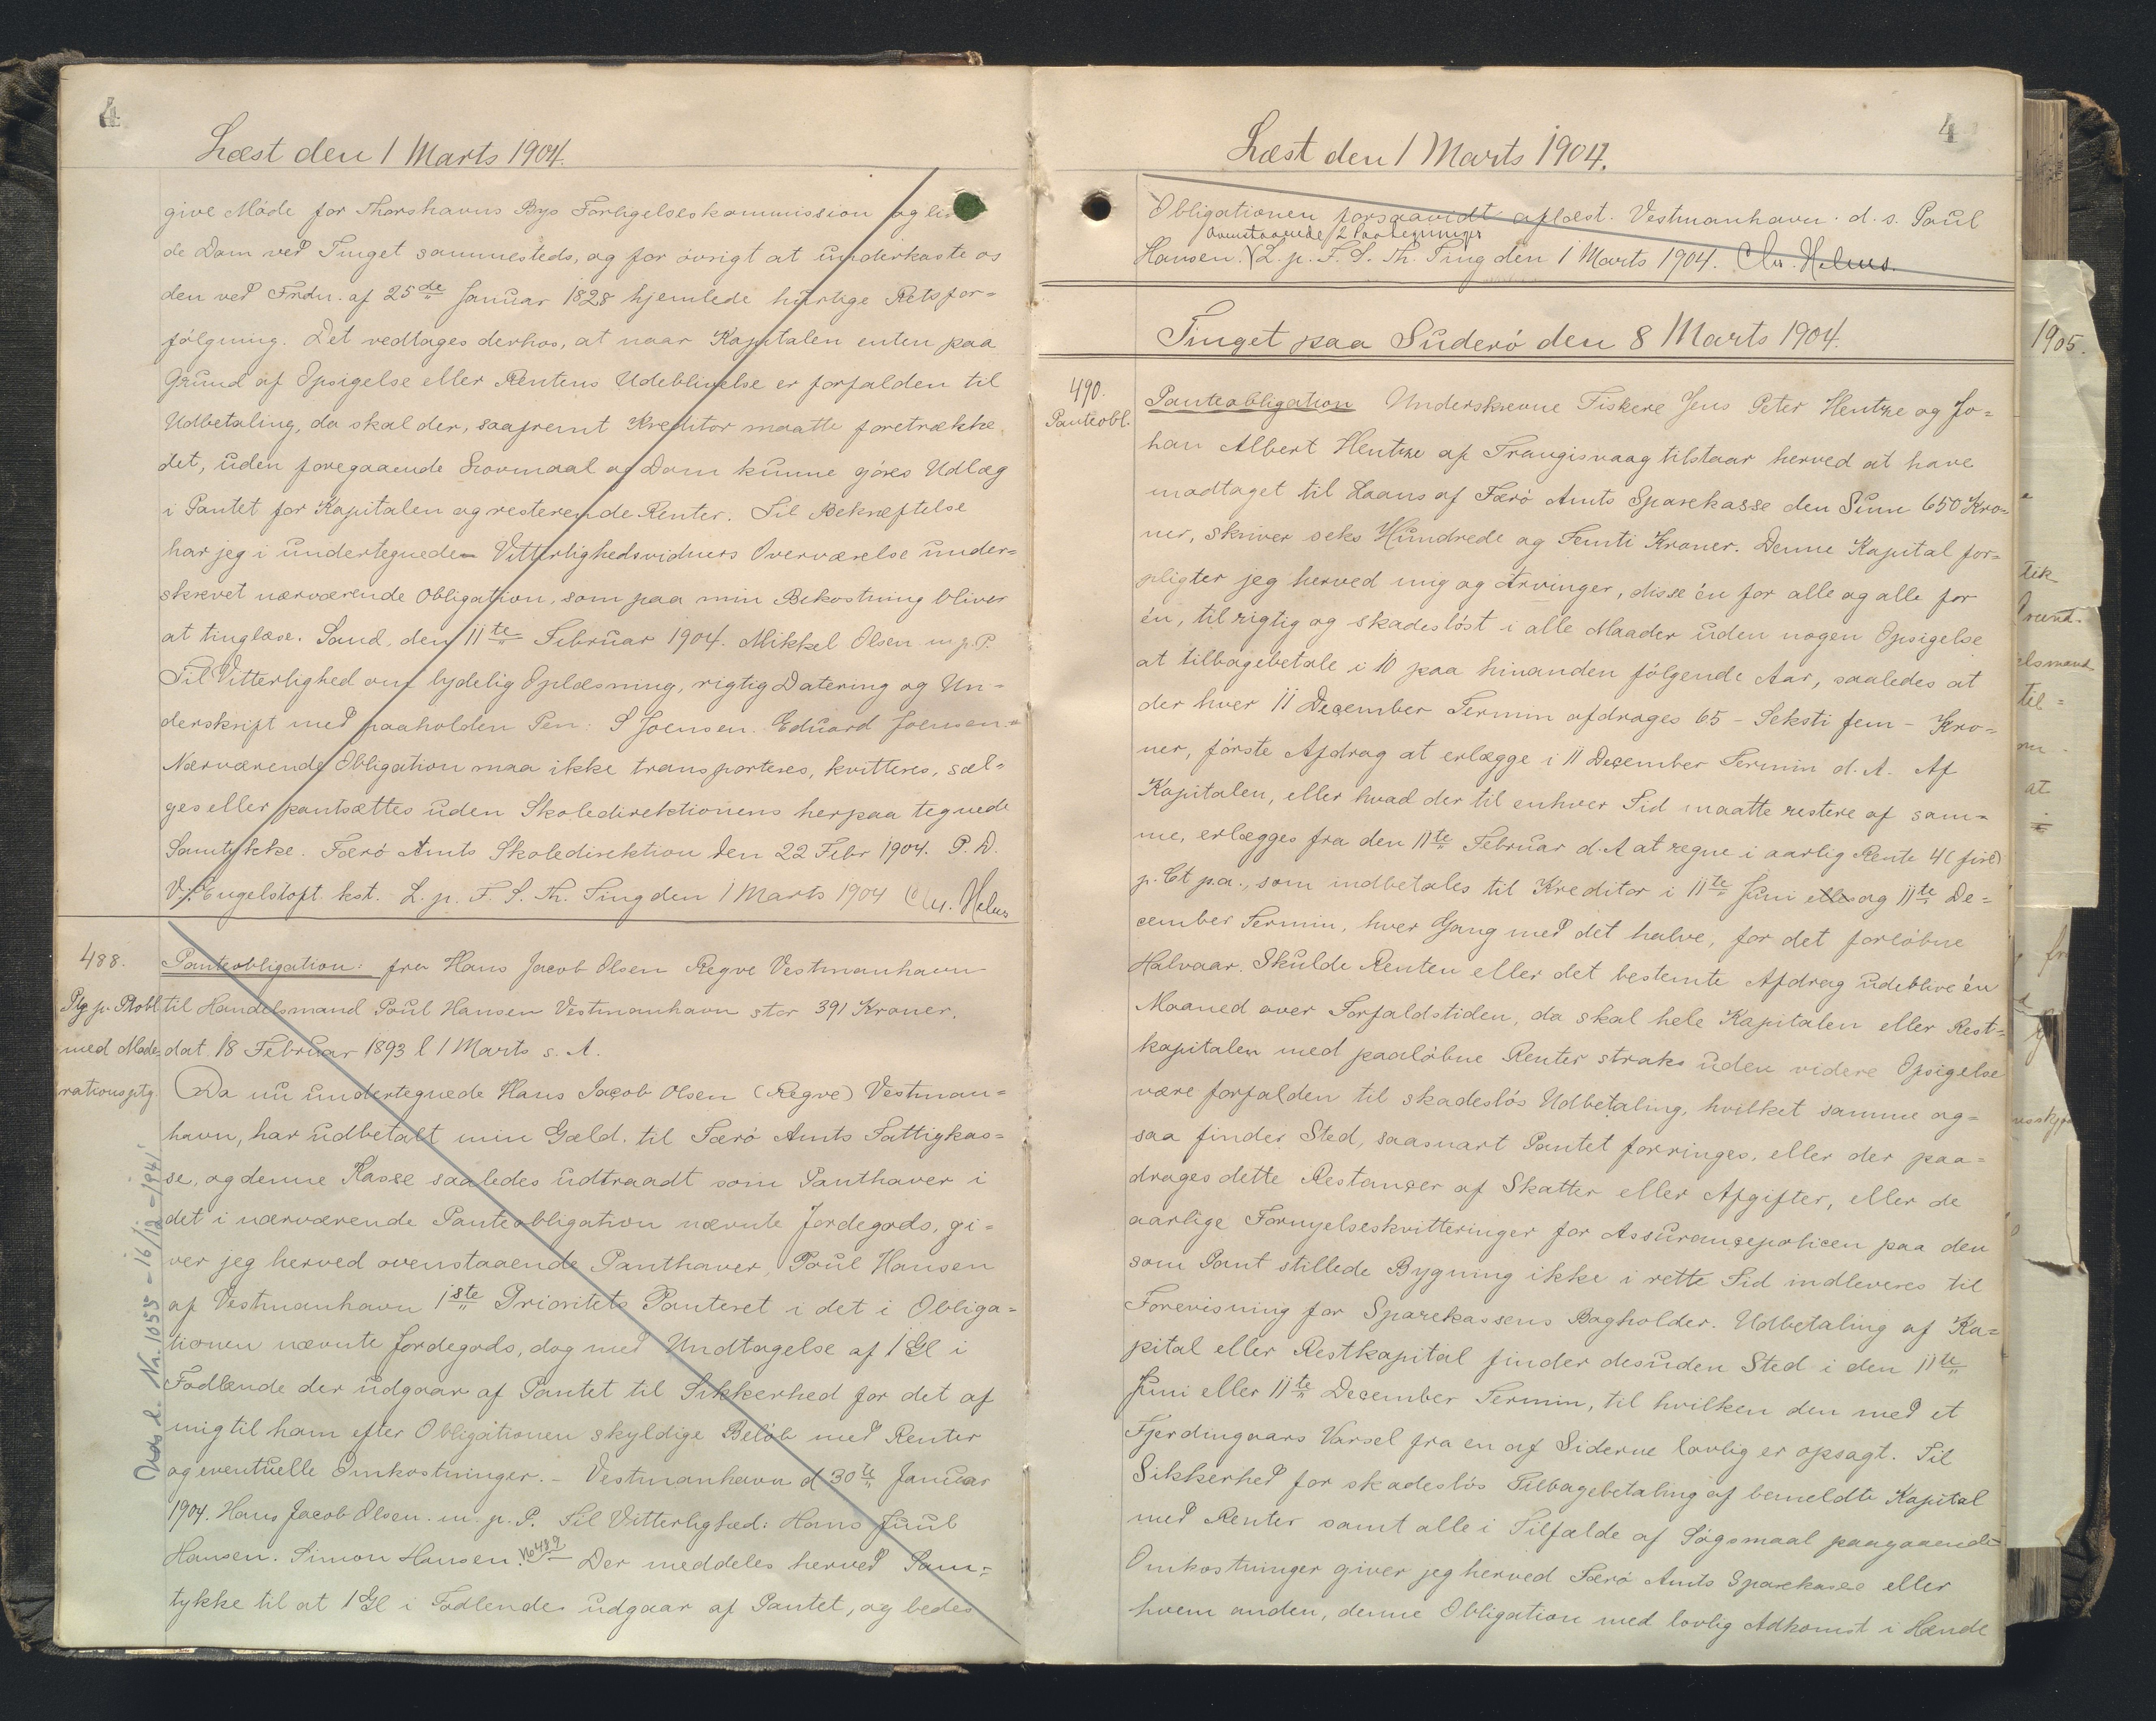 4
Læst den 1 Marts 1904.
give Møde for Thorshavns Bys Forligelseskommission og li
de Dom ved Tinget sammesteds, og for övrigt at underkaste os
den ved Frdn. af 25de Januar 1828 hjemlede hurtige Retsfor=
følgning. Det vedtages derhos, at naar Kapitalen enten paa
Grund af Opsigelse eller Rentens Udeblivelse er forfalden til
Udbetaling, da skal der, saafremt Kreditor maatte foretrække
det, uden foregaaende Lovmaal og Dom kunne gjøres Udlæg
i Pantet for Kapitalen og resterende Renter. Til Bekræftelse
har jeg i undertegnede Vitterlighedsvidners Overværelse under=
skrevet nærværende Obligation, som paa min Bekostning bliver
at tinglæse. Sand, den 11te Februar 1904. Mikkel Olsen m.p.P.
Til Vitterlighed om lydelig Oplæsning, rigtig Datering og Un=
derskrift med paaholden Pen: S Joensen. Eduard Joensen.
Nærværende Obligation maa ikke transporteres, kvitteres, sæl=
ges eller pantsættes uden Skoledirektionens herpaa tegnede
Samtykke. Færö Amts Skoledirektion den 22 Febr 1904. P.D.
V. Engelstoft. kst. L. p. F. S. Th. Ting den 1 Marts 1904
488. Panteobligation: fra Hans Jacob Olsen Regve Vestmanhavn
Ptg p. Ptobl til Handelsmand Poul Hansen Vestmanhavn stor 391 Kroner.
med Mode= dat. 18 Februar 1893 l 1 Marts s. A.
rationsptg. Da nu undertegnede Hans Jacob Olsen (Regve) Vestman=
havn, har udbetalt min Gæld til Færö Amts Fattigkas=
se, og denne Kasse saaledes udtraadt som Panthaver i
det i nærværende Panteobligation nævnte Jordegods, gi=
ver jeg herved ovenstaaende Panthaver, Poul Hansen
af Vestmanhavn 1ste Prioritets Panteret i det i Obliga=
tionen nævnte Jordegods, dog med Undtagelse af 1 Gl i
Fodlende der udgaar af Pantet til Sikkerhed for det af
mig til ham efter Obligationen skyldige Beløb med Renter
og eventuelle Omkostninger. - Vestmanhavn d 30te Januar
1904. Hans Jacob Olsen. m. p. P. Til Vitterlighed: Hans Juul
Hansen. Simon Hansen. No 489 Der meddeles herved Sam=
tykke til at 1 Gl i Fodlende udgaar af Pantet, og bedes
Nr. 1055 - 16/12 - 1941
4
Læst den 1 Marts 1904.
Obligationen forsaavidt aflæst. Vestmanhavn. d. s. Poul
Ovenstaaende 2 Paategninger
Hansen. L. p. F. S. Th. Ting den 1 Marts 1904.
Tinget paa Suderö den 8 Marts 1904.
490.
Panteobl.
Panteobligation Underskrevne Fiskere Jens Peter Hentze og Jo=
han Albert Hentze af Trangisvaag tilstaar herved at have
modtaget til Laans af Færö Amts Sparekasse den Sum 650 Kro=
ner, skriver seks Hundrede og Femti Kroner. Denne Kapital for=
pligter jeg herved mig og Arvinger, disse én for alle og alle for
én, til rigtig og skadesløst i alle Maader uden nogen Opsigelse
at tilbagebetale i 10 paa hinanden følgende Aar, saaledes at
der hver 11 December Termin afdrages 65 - Seksti fem - Kro=
ner, første Afdrag at erlægge i 11 December Termin d. A. Af
Kapitalen, eller hvad der til enhver Tid maatte restere af sam=
me, erlægges fra den 11te Februar d. A at regne i aarlig Rente 4 (fire)
p. Ct p.a., som indbetales til Kreditor i 11te Juni og 11te De=
cember Termin, hver Gang med det halve, for det forløbne
Halvaar. Skulde Renten eller det bestemte Afdrag udeblive én
Maaned over Forfaldstiden, da skal hele Kapitalen eller Rest=
kapitalen med paaløbne Renter straks uden videre Opsigelse
være forfalden til skadesløs Udbetaling, hvilket samme og=
saa finder Sted, saasnart Pantet forringes, eller der paa=
drages dette Restancer af Skatter eller Afgifter, eller de
aarlige Fornyelseskvitteringer for Assurancepolicen paa den
som Pant stillede Bygning ikke i rette Tid indleveres til
Forevisning for Sparekassens Bogholder. Udbetaling af Ka=
pital eller Restkapital finder desuden Sted i den 11te
Juni eller 11te December Termin, til hvilken den med et
Fjerdingaars Varsel fra en af Siderne lovlig er opsagt. Til
Sikkerhed for skadesløs Tilbagebetaling af bemeldte Kapital
med Renter samt alle i Tilfælde af Søgsmaal paagaaende
Omkostninger giver jeg herved Færö Amts Sparekasse eller
hvem anden, denne Obligation med lovlig Adkomst i Hænde
1905.